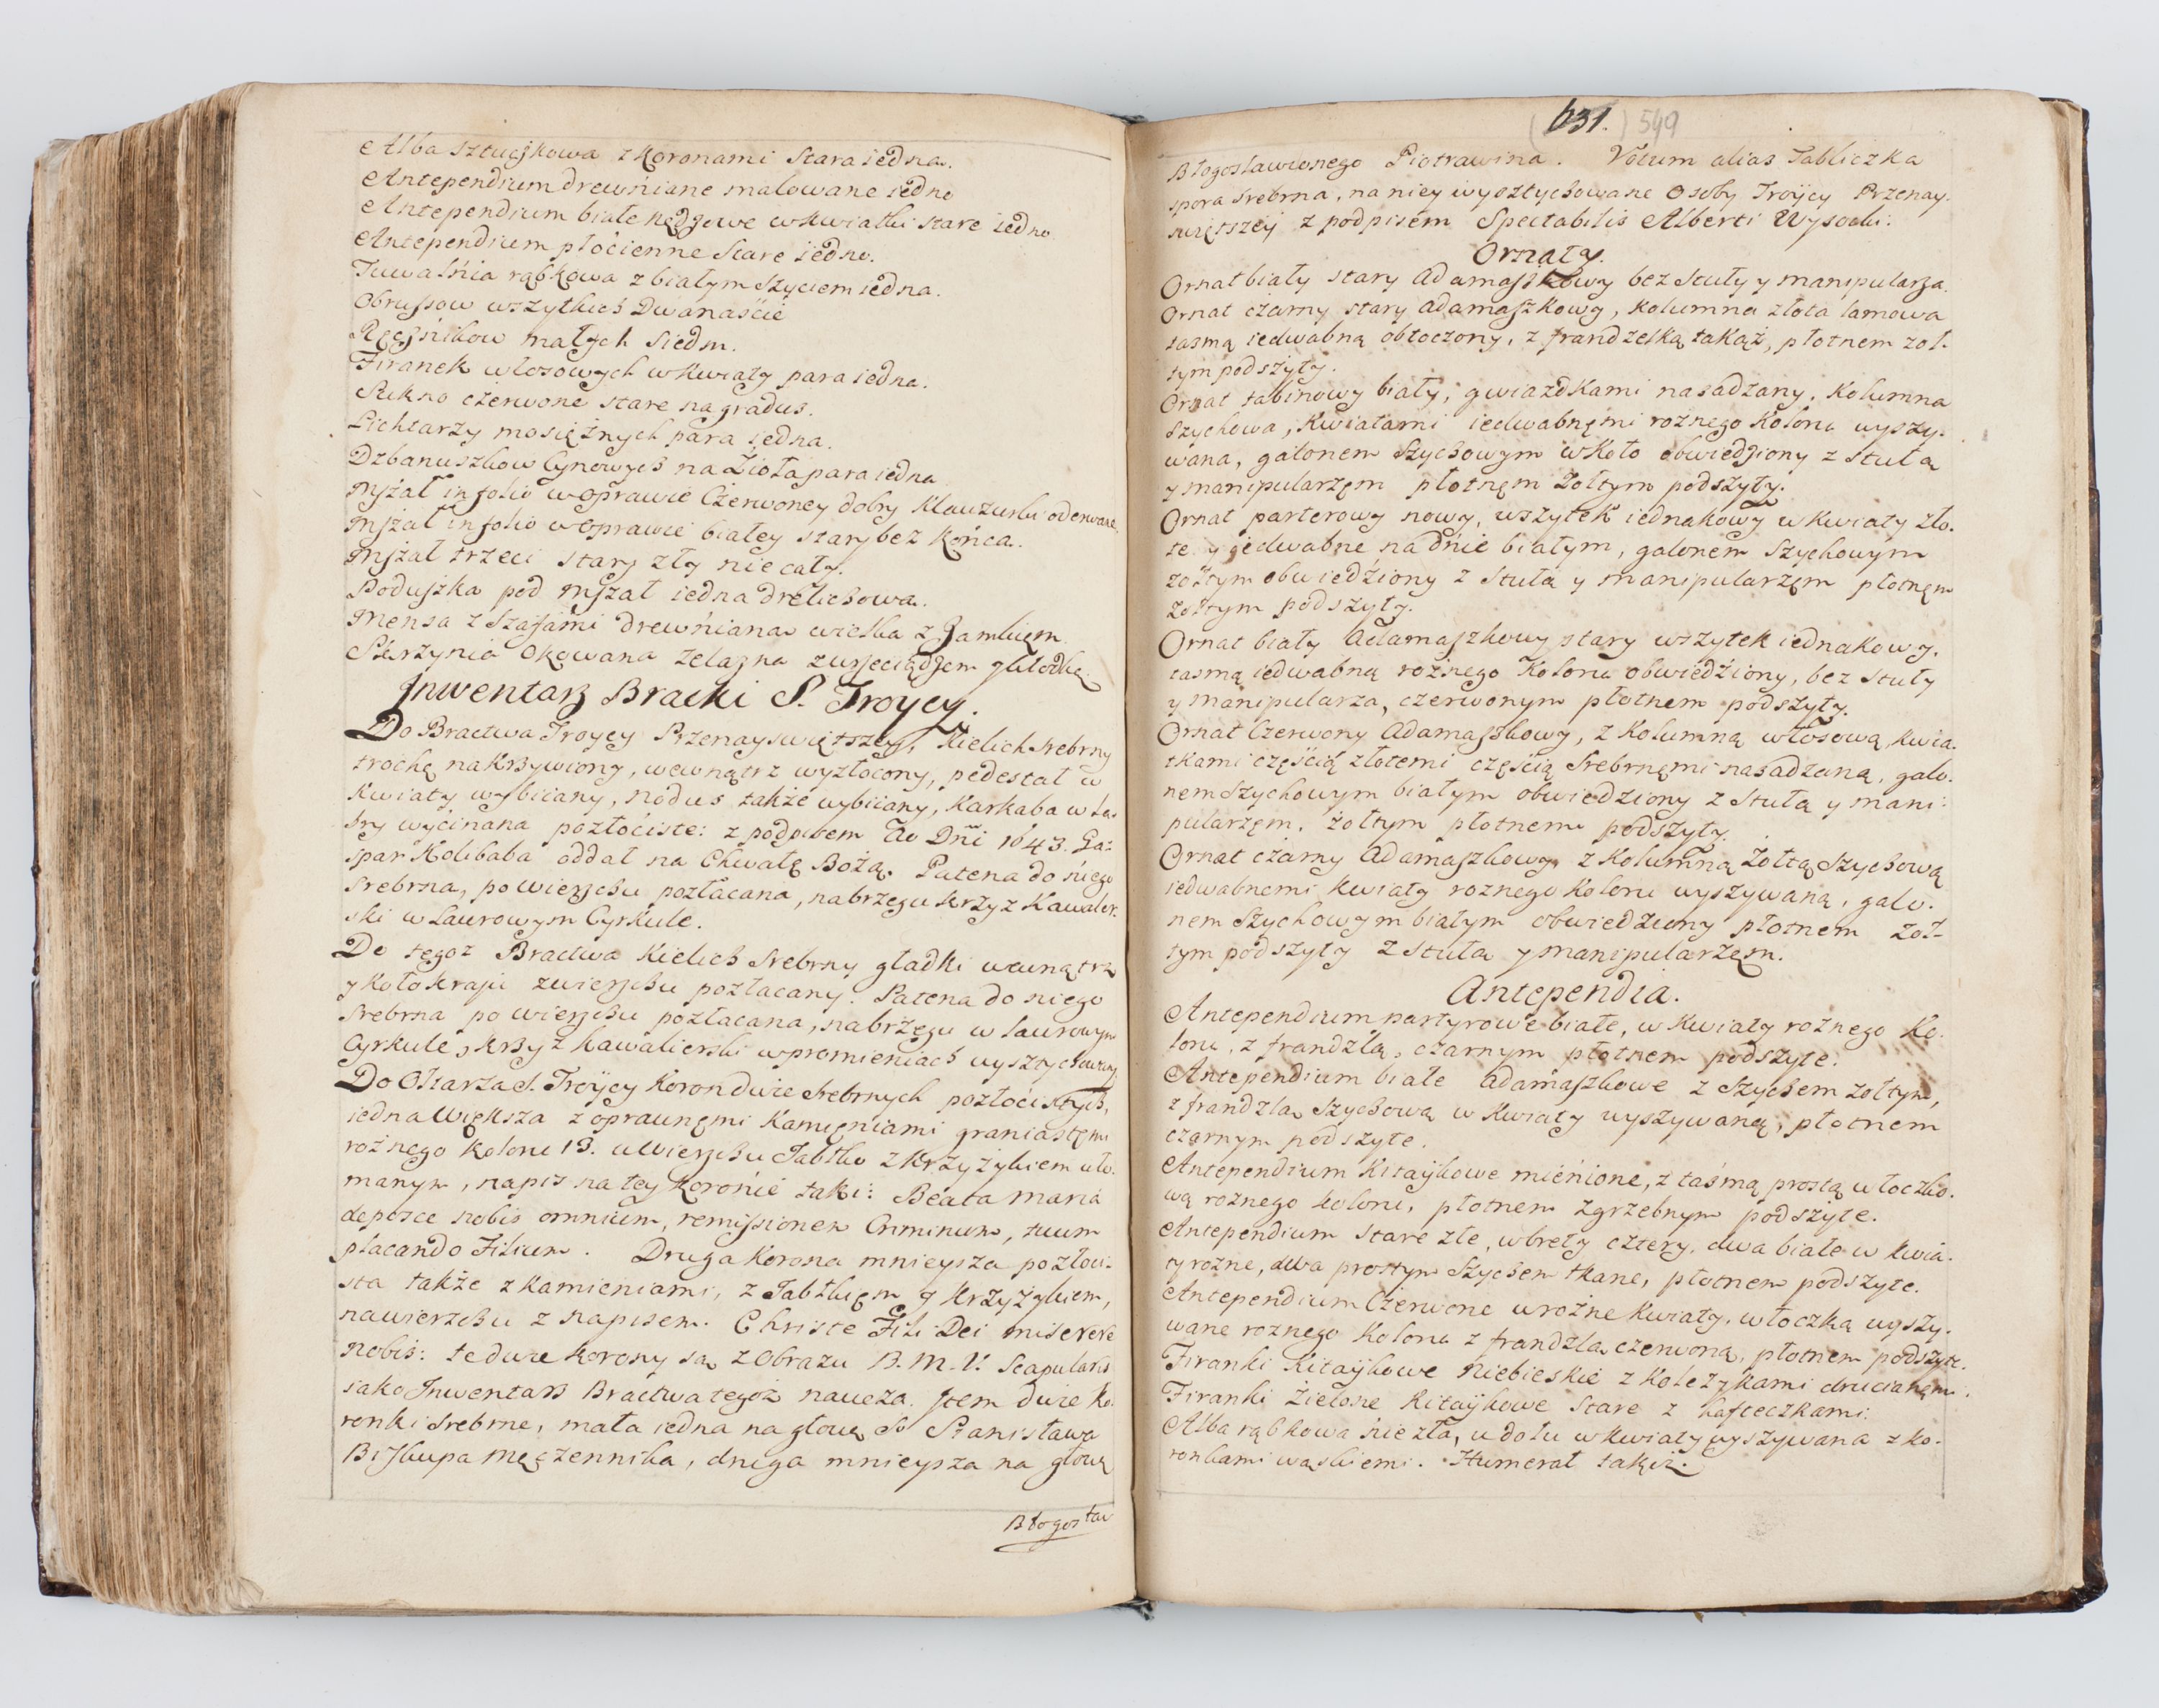 Alba Sztuczkowa z Koronami Stara iedna.
Antependium drewniane malowane iedno
Antependium białe Nędzowe w kwiatki stare iedno
Antependium płócienne Stare iedno.
Tuwalńia rąbkowa z białym szyciem iedna.
Obrussow wszytkich Dwanaście
Ręcznikow małych Siedm.
Firanek włosowych w kwiaty para iedna.
Sukno czerwone stare na gradus.
Lichtarzy mosiężnych para iedna.
Dzbanuszkow Cynowych na Zioła para iedna
Mszał in folio w oprawie Czerwoney dobry Klauzurki oderwane
Mszał in folio w oprawie białey stary bez końca.
Mszał trzeci stary zły nie cały.
Poduszka pod Mszał iedna drelichowa.
Mensa z Szafami drewńiana wielka z Zamkiem
Skrzynia okowana żelazna z wrzeciądzem y kłotką.
Inwentarz Bracki S. Troycy.
Do Bractwa Troycy Przenayswiętszey, Kielich srebrny
trochę nakrzywiony, wewnątrz wyzłocony, pedestał w
kwiaty wybiiany, nodus także wybiiany, Karkaba w La-
bry wycinana pozłociste: z podpisem Ao Dni 1643. Ga-
spar Kolibaba oddał na Chwałę Bożą. Patena do niego
Srebrna, po wierzchu pozłacana, na brzegu krzyz Kawaler-
ski w Laurowym Cyrkule.
Do tegoz Bractwa Kielich Srebrny gładki wewnątrz
y koło kraju zwierzchu pozłacany. Patena do niego
Srebrna po wierzchu pozłacana, na brzegu w laurowym
Cyrkule, krzyz kawalierski w promieniach wysztychowany
Do Ołtarza S. Troycy Koron dwie Srebrnych pozłocistych,
iedna większa z oprawnęmi Kamięniami graniastęmi
rożnego koloru 13. u wierzchu Jabłko z krzyżykiem uło-
manym, napis na tey Koronie taki: Beata Maria
deposce nobis omnium, remissionem Criminum, tuum
placando Filium. Druga Korona mnieysza pozłoci-
sta także z kamieniami, z Jabłkiem y krzyżykiem,
na wierzchu z napisem. Christe Fili Dei miserere
nobis: te dwie korony są z Obrazu B.M.V. Scapularis
iako Inwentarz Bractwa tegoż naucza. Item dwie ko-
ronki srebrne, mała iedna na głowę S. Stanisława
Biskupa Męczennika, druga mnieysza na głowę
Błogosław
631. 549
Błogosławionego Piotrawina. Votum alias Tabliczka
spora srebrna, na niey wysztychowane Osoby Troycy Przenay-
swiętszey z podpisem Spectabilis Alberti Wysocki.
Ornaty.
Ornat biały stary Adamaszkowy bez Stuły y manipularza.
Ornat czarny stary adamaszkowy, kolumna złota lamowa
tasmą iedwabną obtoczony, z frandzelką takąż, płotnem żoł-
tym podszyty.
Ornat tabinowy biały, gwiazdkami nasadzany. Kolumna
Szychowa, Kwiatami iedwabnęmi rożnego Koloru wyszy-
wana, galonem Szychowym w koło obwiedziony z Stułą
y manipularzęm płotnęm Zołtym podszyty.
Ornat parterowy nowy, wszytek iednakowy w kwiaty zło-
te y iedwabne na dnie białym, galonem Szychowym
żołtym obwiedziony z stułą y manipularzęm płotnęm
żołtym podszyty.
Ornat biały Adamaszkowy stary wszytek iednakowy.
tasmą iedwabną rożnego Koloru obwiedziony, bez stuły
y manipularza, czerwonym płotnem podszyty.
Ornat Czerwony Adamaszkowy, z Kolumną włosową kwia-
tkami częścią złotemi częścią Srebrnęmi nasadzaną, galo-
nem Szychowym białym obwiedziony z Stułą y mani-
pularzęm, żołtym płotnem podszyty.
Ornat czarny Adamaszkowy z Kolumną żołtą szychową
iedwabnemi kwiaty rożnego Koloru wyszywaną, galo-
nem Szychowym białym obwiedziony płotnem żoł-
tym podszyty z stułą y manipularzęm.
Antependia.
Antependium partyrowe białe, w kwiaty rożnego Ko-
loru, z frandzlą, czarnym płotnem podszyte.
Antependium białe Adamaszkowe z Szychem żołtym,
z frandzlą Szychową w kwiaty wyszywaną, płotnem
czarnym podszyte.
Antependium Kitaykowe mienione, z taśmą prostą włoczko-
wą rożnego koloru, płotnem zgrzebnym podszyte.
Antependium stare złe, w brety cztery, dwa białe w kwia-
ty rożne, dwa prostym Szychem tkane, płotnem podszyte.
Antependium Czerwone w rożne kwiaty, włoczką wyszy-
wane rożnego Koloru z frandzlą czerwoną, płotnem podszyte.
Firanki Kitaykowe Niebieskie z koleżykami drucianęmi.
Firanki Zielone Kitaykowe Stare z hafteczkami.
Alba rąbkowa nie zła, u dołu w kwiaty wyszywana z ko-
ronkami wąskiemi. Humerał takiż.